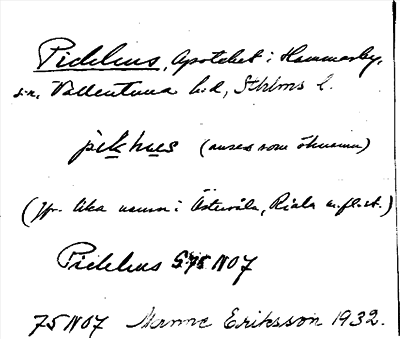 Pickhus, Apotehet i Hammarby,
sn, Vallentuna hd, Sthlms l.
pikhus (anses som öknamn)
(Jfr. lika namn i Östervåla, Riala m.fl. st.)
Pickhus 5:75 NO7
75 NO7 Manne Eriksson 1932.